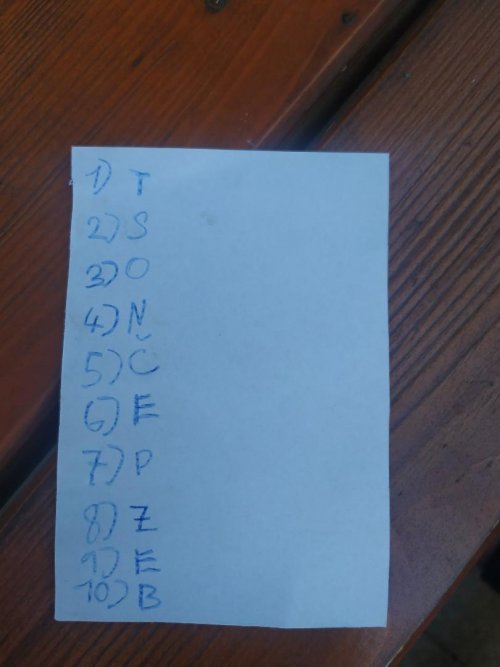 1) T
2) S
3) O
4) N
5) Č
6) E
7) P
8) Z
9) E
10) B